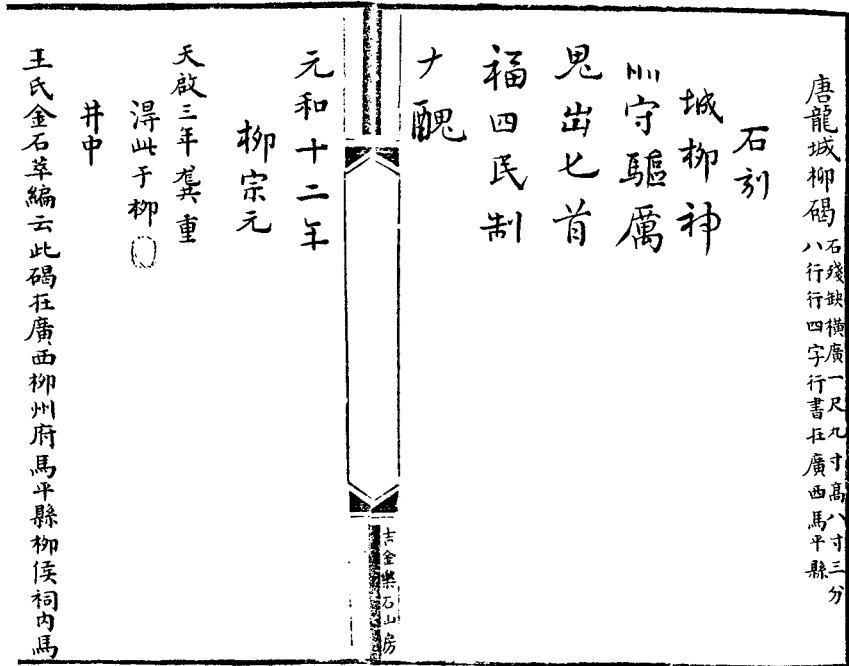 唐龍城柳碣
石殘缺橫廣一尺九寸高八寸三分
八行行四字行書在廣西馬平縣
石刻
城柳神
守驅厲
鬼出匕首
福四民制
醜
吉金樂石山房
元和十二年
柳宗元
天啟三年龔重
得此于柳
井中
王氏金石萃編云此碣在廣西柳州府馬平縣柳侯祠内馬